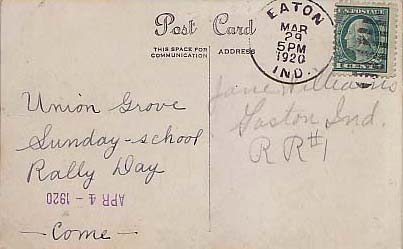 Post Card
THIS SPACE FOR
COMMUNICATION
ADDRESS
EATON
MAR
29
5PM
1920
IND.
1 CENT 1
Union Grove
Sunday-school
Rally Day
APR 4 - 1920
- Come -
Jane Williams
Gaston Ind.
R R #1